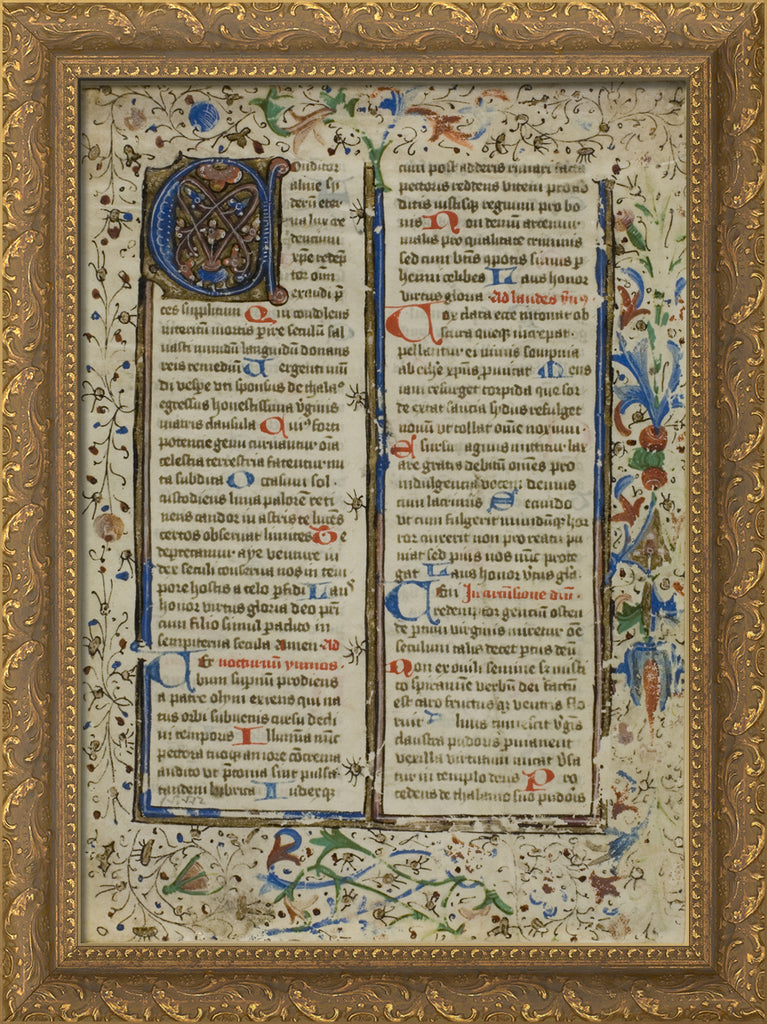 Conditor
alme sy
derũ eter
na lux cre
dentium
xp̄e redep̄
tor om̄
exaudi p̄
ces supplicum Qui condolens
interitum mortis p̄ire seculũ sal
uasti mundũ languidũ donans
reis remediũ Uergenti mũ
di vesp̄e vti sponsus de thala°
egressus honestissima v̓ginis
matris clausula Cui⁹ forti
potentie genu curuantur oīa
celestia terrestria fatentur nu
tu subdita Occasum sol
custodiens luna palorē reti
nens candor in astris
certos obseruat limites Te
deprecamur agye venture iu
dex seculi conserua nos in tem
pore hostis a telo p̄fidi Laus
honor virtus gloria deo pr̄i
cum filio simul paclito in
sempiterna secula Amen Ad
Uer nocturnū ymnos
bum sup̄nũ prodiens
a patre olym exiens qui na
tus orbi subuenis cursu decli
ui temporis Illumīa nūc
pectora tuoq; amore cōcrema
audito vt p̄conia sint pulsa
tandem lubrica Iudexq;
cum post adderis rimari facta
pectoris reddens vicem pro ab
ditis iustisq; regnum pro bo
nis Non demū artemur
malis pro qualitate criminis
sed cum bn̄is 9potes simus p
henni celibes Laus honor
virtus gloria Ad laudes
Uox clara ecce intonat ob
scura queq; increpat
pellantur eminus sompnia
ab ethe xp̄us p̄micat Mens
iam resurget torpida que sor
de extat saucia sydus refulget
nouum vt tollat om̄e noxium
Esursū agnus mittitur lax
are gratis debitum om̄es pro
indulgencia vocem demus
cum lacrimis Secundo
vt cum fulgerit mundūq; hor
ror cinxerit non pro reatu pu
niat sed pius nos nūc prote
gat Laus honor v̓tus gl̄a
Ueni In
redemptor gencium osten
de p̄tum virginis miretur om̄e
seculum talis decet p̄tus deū
Non ex virili semine sz misti
co spiramine verbū dei factū
est caro fructusq; ventris flo
ruit Aluus tumescit v̓gīs
claustra pudoris p̄manent
vexilla virtutum micat v̓sa
tur in templo deus Pro
cedens de thalamo suo pudoris